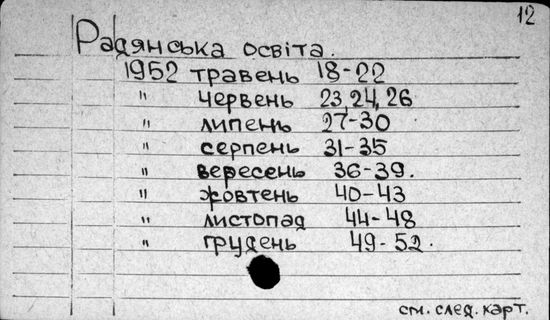 12
Радянська освіта.
1952 травень 18-22
" червень 23,24,26
" липень 27-30
" серпень 31-35
" вересень 36-39.
" жовтень 40-43
" листопад 44-48
" грудень 49-52.
см. след. карт.